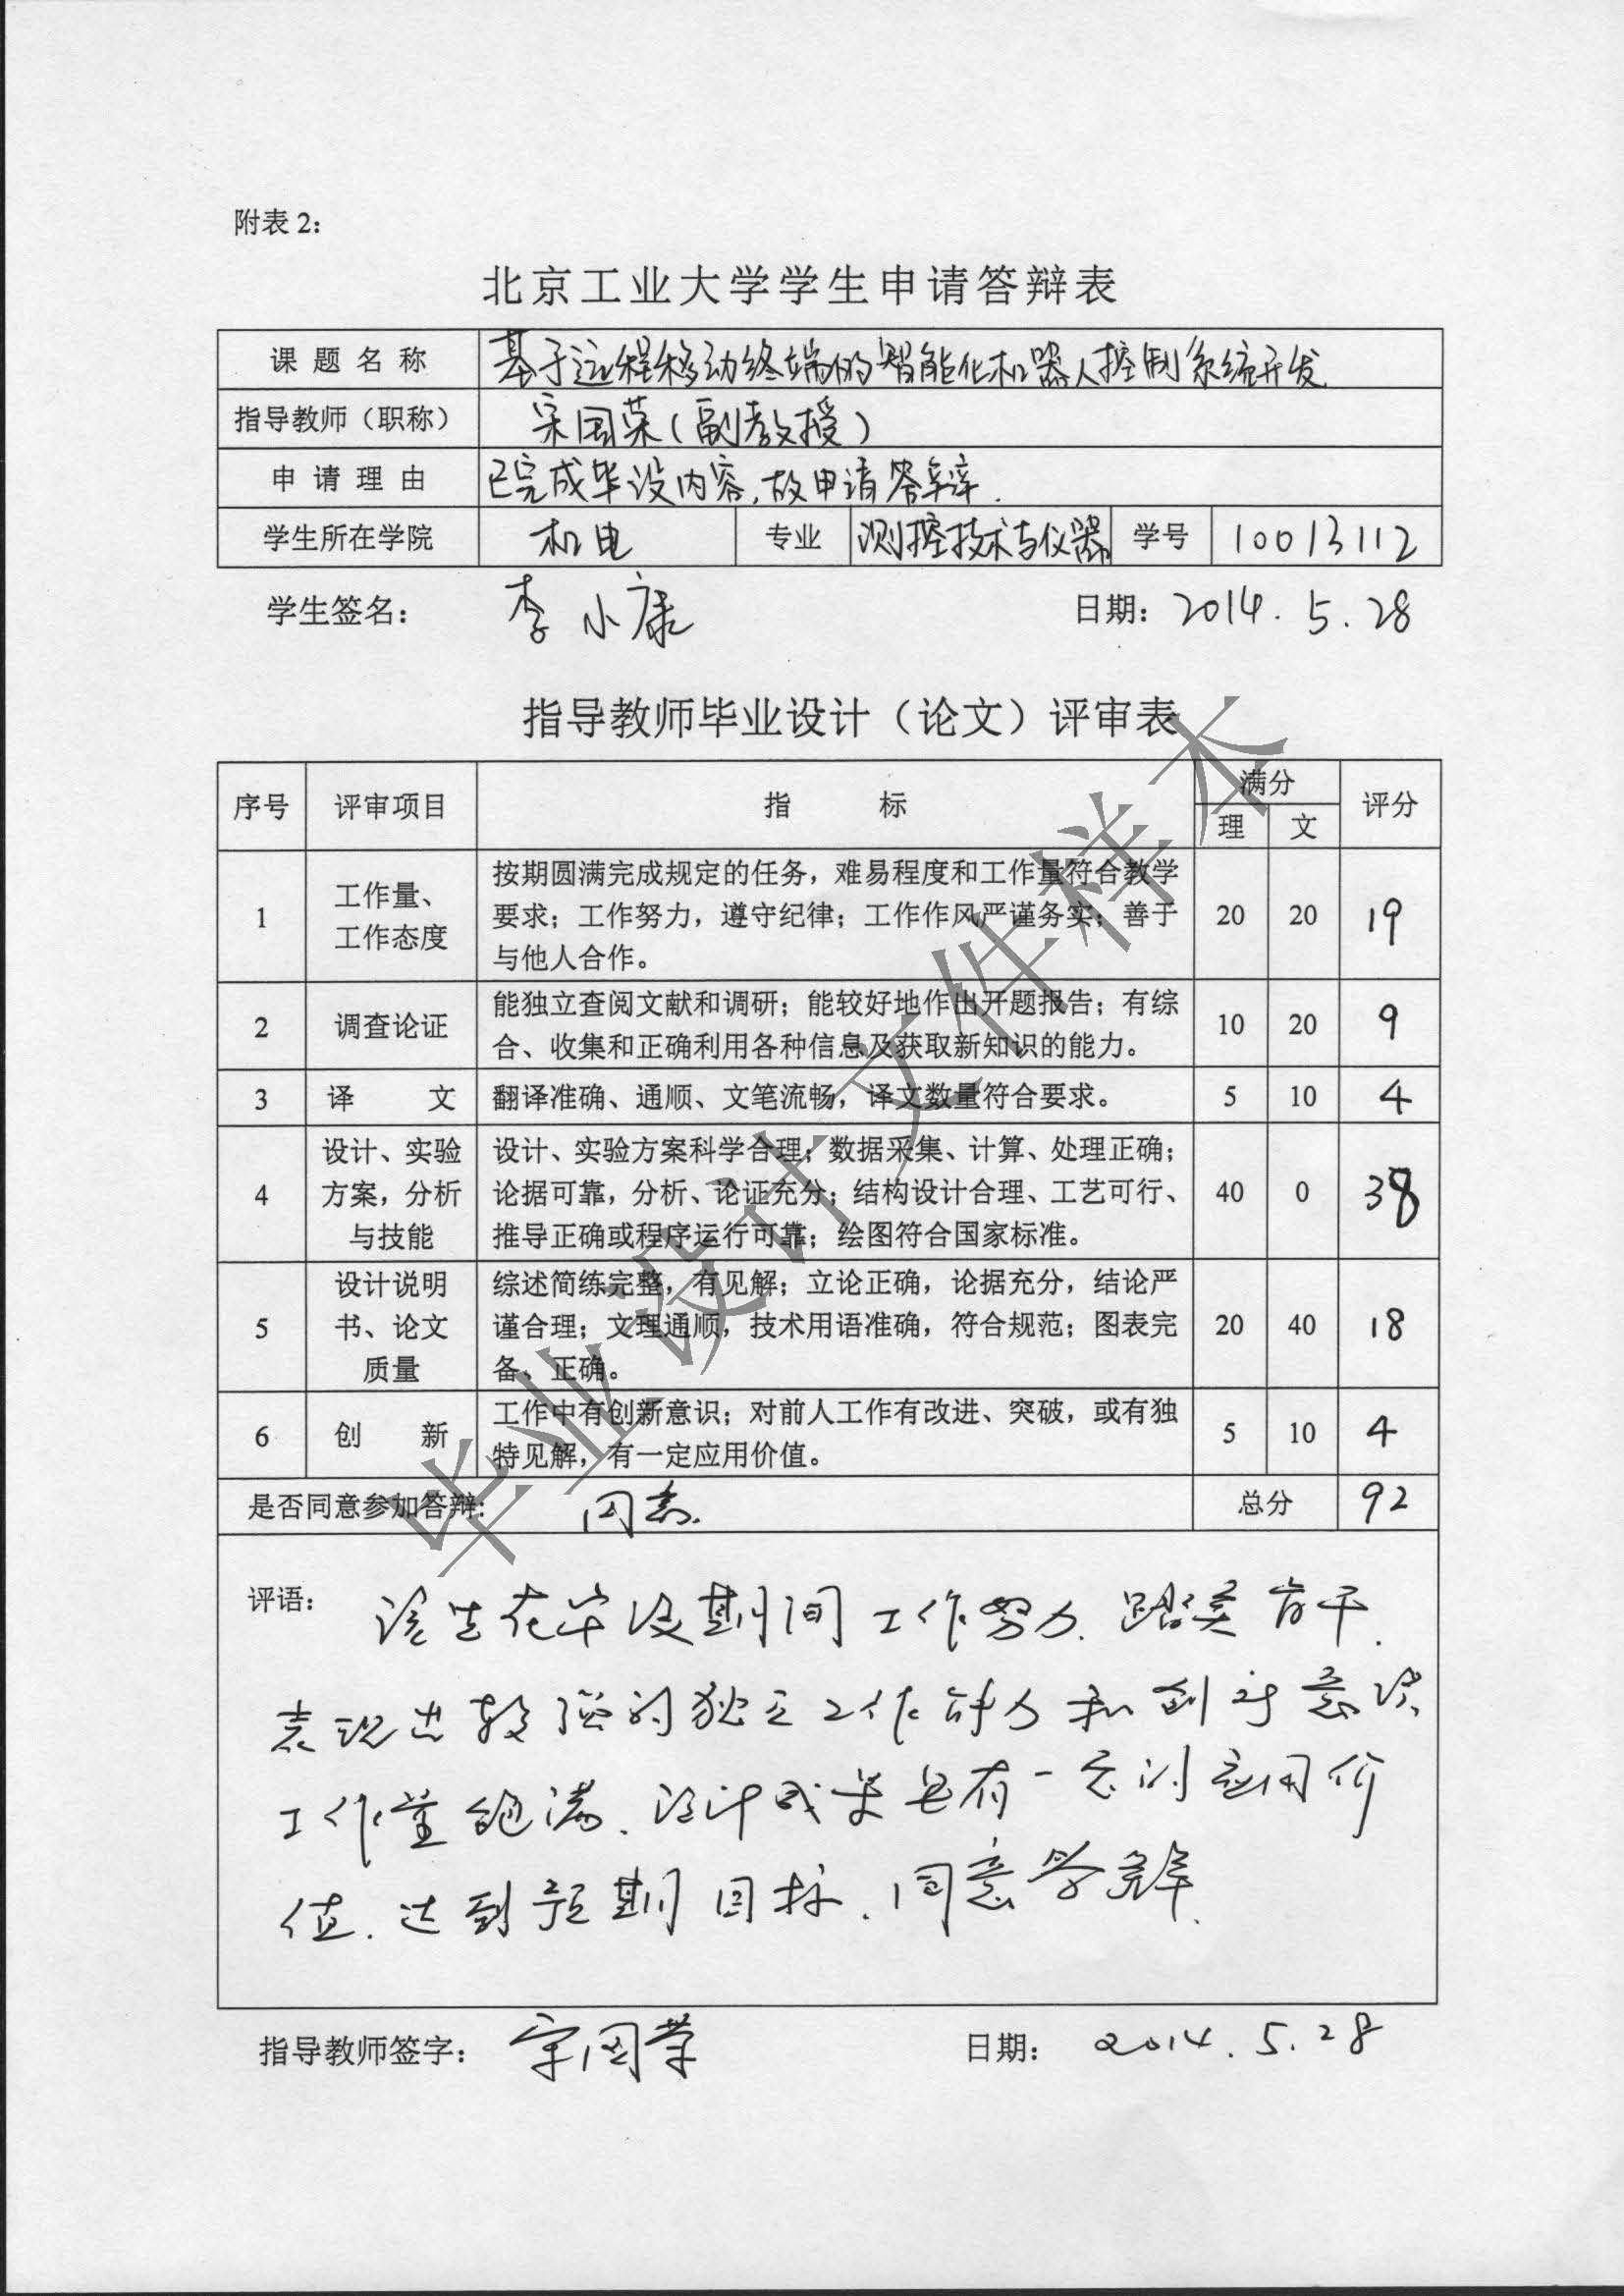 附表 2：
北京工业大学学生申请答辩表
课题名称 基于远程移动终端的智能化机器人控制系统开发
指导教师（职称） 宋国荣（副教授）
申请理由 已完成毕设内容，故申请答辩．
学生所在学院 机电 专业 测控技术与仪器 学号 10013112
学生签名： 李小康 日期：2014．5．28
指导教师毕业设计（论文）评审表
序号 评审项目 指 标 满分 评分
理 文
1 工作量、 按期圆满完成规定的任务，难易程度和工作量符合教学 20 20 19
工作态度 要求；工作努力，遵守纪律；工作作风严谨务实；善于
与他人合作。
2 调查论证 能独立查阅文献和调研；能较好地作出开题报告；有综 10 20 9
合、收集和正确利用各种信息及获取新知识的能力。
3 译 文 翻译准确、通顺、文笔流畅，译文数量符合要求。 5 10 4
设计、实验 设计、实验方案科学合理；数据采集、计算、处理正确；
4 方案，分析 论据可靠，分析、论证充分；结构设计合理、工艺可行、 40 0 38
与技能 推导正确或程序运行可靠；绘图符合国家标准。
设计说明 综述简练完整，有见解；立论正确，论据充分，结论严
5 书、论文 谨合理；文理通顺，技术用语准确，符合规范；图表完 20 40 18
质量 备、正确。
6 创 新 工作中有创新意识；对前人工作有改进、突破，或有独 5 10 4
特见解，有一定应用价值。
是否同意参加答辩： 同意． 总分 92
评语： 该生在毕设期间工作努力．踏实肯干．
表现出较强的独立工作能力和创新意识
工作量饱满．设计成果具有一定的应用价
值．达到预期目标．同意答辩．
指导教师签字： 宋国荣 日期： 2014．5．28
毕业设计文件样本